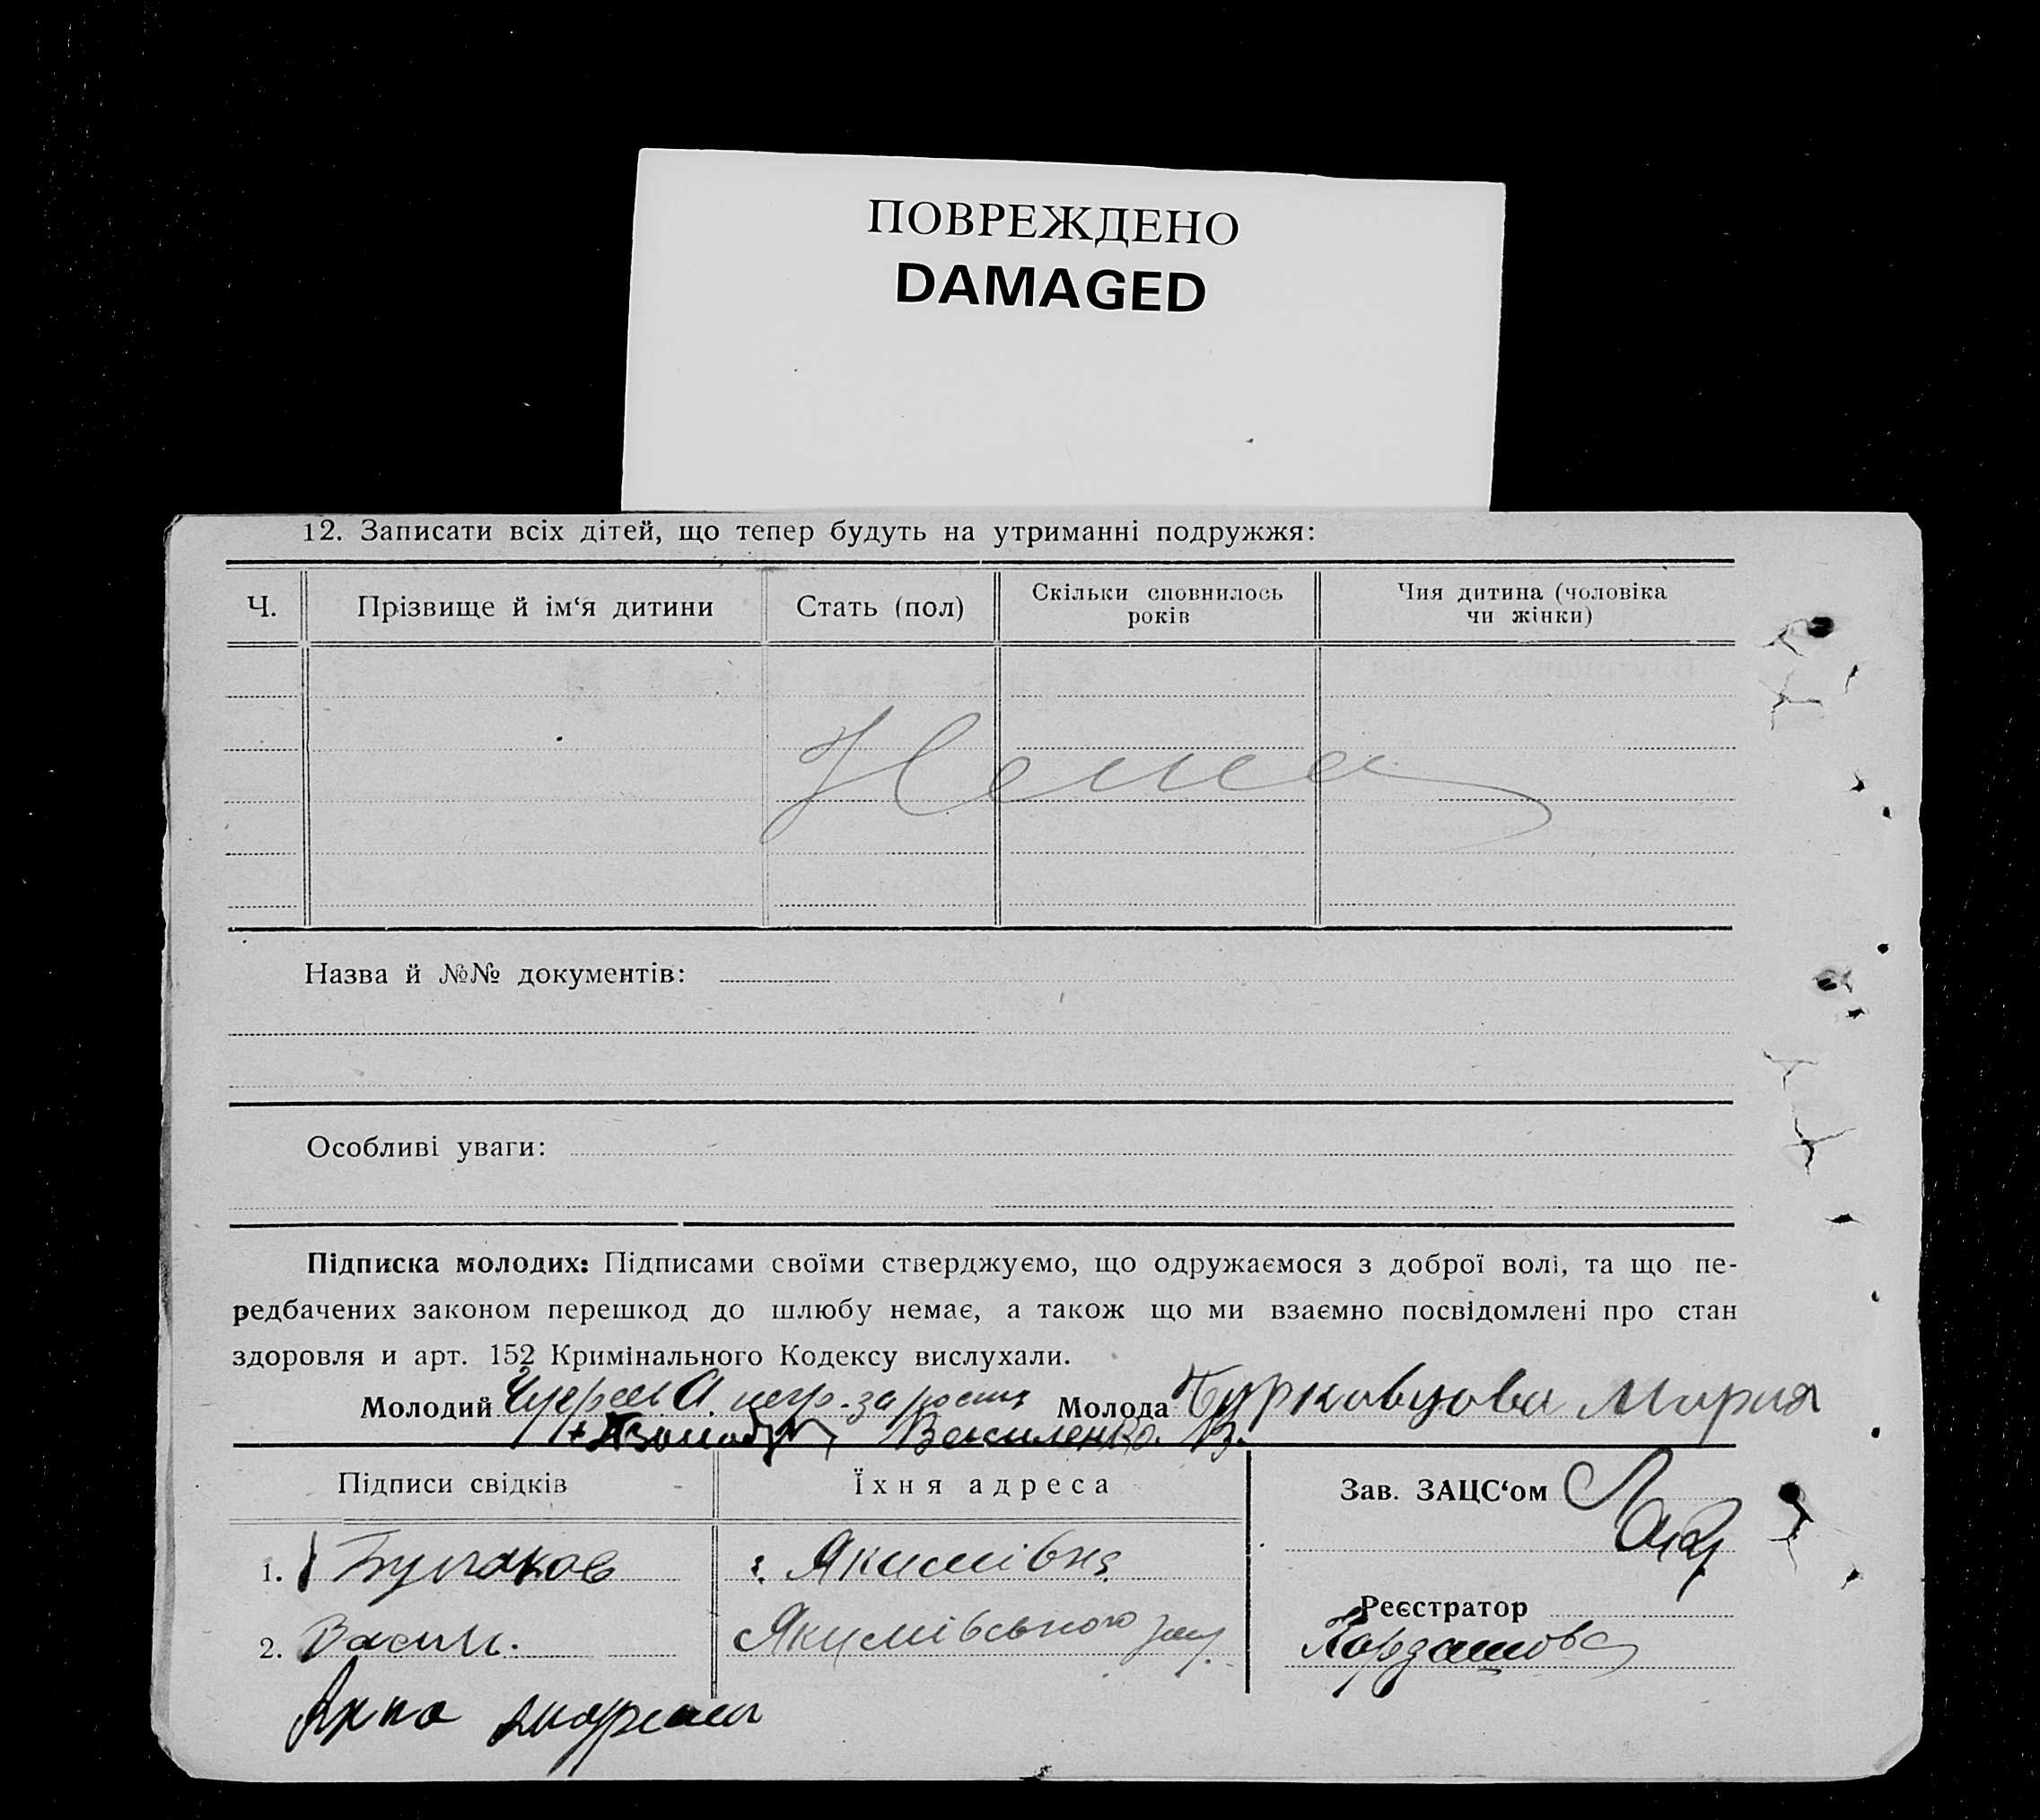 ПОВРЕЖДЕНО
DAMAGED
12. Записати всіх дітей, що тепер будуть на утриманні подружжя:
Ч. Прізвище й ім‘я дитини Стать (пол) Скільки сповнилось років Чия дитина (чоловіка чи жінки)
Нема
Назва й №№ документів:
Особливі уваги:
Підписка молодих: Підписами своїми стверджуємо, що одружаємося з доброї волі, та що пе-
редбачених законом перешкод до шлюбу немає, а також що ми взаємно посвідомлені про стан
здоровля и арт. 152 Кримінального Кодексу вислухали.
Молодий Молода Мария
Василенко. В.
Підписи свідків Їхня адреса Зав. ЗАЦС‘ом
1. Булгаков Якимівка
Реєстратор
2. Якимівського
Анна